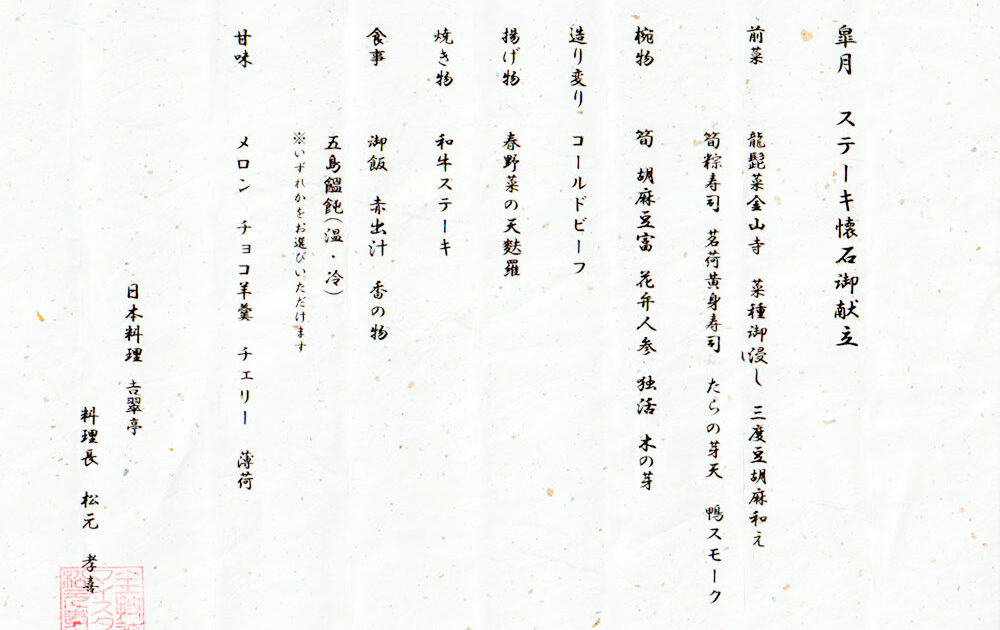 皐月 ステーキ懐石御献立
前菜 龍髭菜金山寺 菜種御浸し 三度豆胡麻和え
筍粽寿司 茗荷黄身寿司 たらの芽天 鴨スモーク
椀物 筍 胡麻豆富 花弁人参 独活 木の芽
造り変り コールドビーフ
揚げ物 春野菜の天麩羅
焼き物 和牛ステーキ
食事 御飯 赤出汁 香の物
五島饂飩(温・冷)
※いずれかをお選びいただけます
甘味 メロン チョコ羊羹 チェリー 薄荷
日本料理 吉翠亭
料理長 松元 孝喜